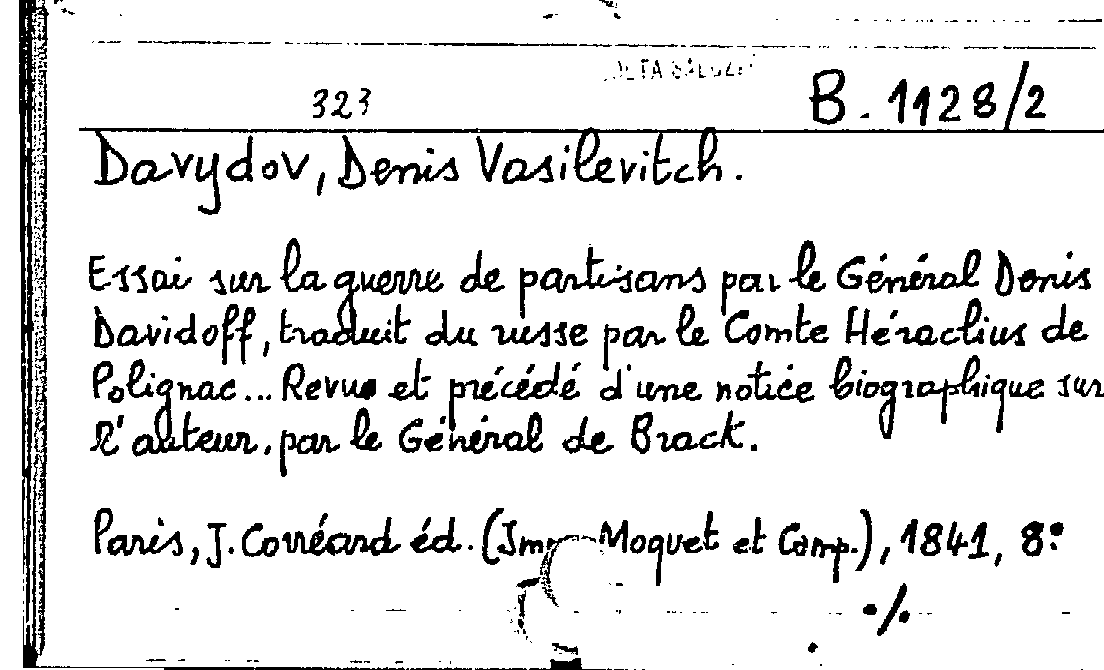 323
B. 1128/2
Davydov, Denis Vasilevitch.
Essai sur la guerre de partisans par le Général Denis
Davidoff, traduit du russe par le Comte Héraclius de
Polignac... Revue et précédé d'une notice biographique sur
l'auteur, par le Général de Brack.
Paris, J. Corréard éd. (Moquet et Comp.), 1841, 8º
./.